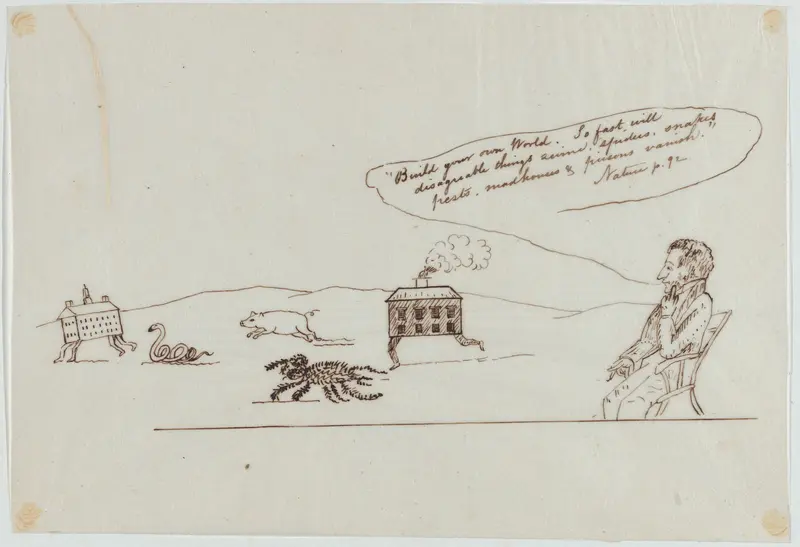 "Build your own World. So fast will
disagreable things swine, spiders, snakes
pests, madhouses & prisons vanish."
Nature p. 92